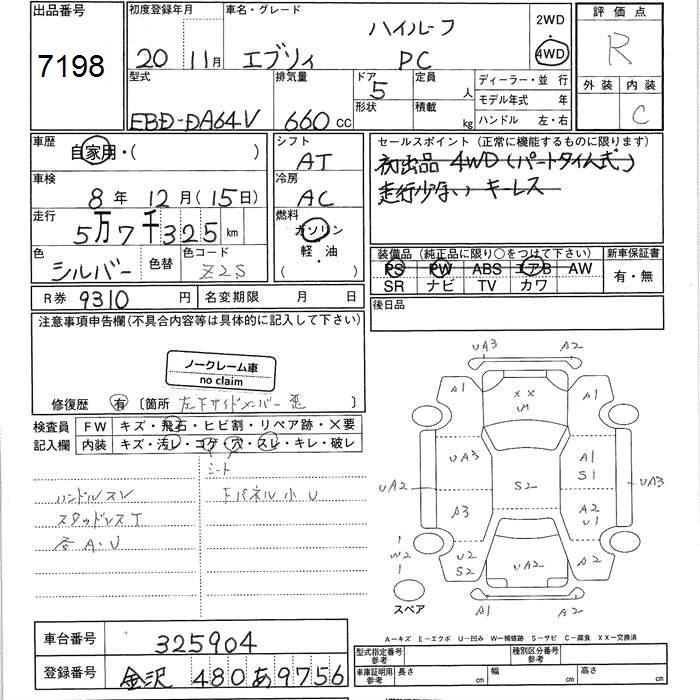 出品番号 初度登録年月 車名・グレード 2WD 評価点
7198 20 11月 エブリィ ハイルーフ PC ・ 4WD R
型式 排気量 ドア 定員 ディーラー・並 行 外装 内装
EBD-DA64V 660 CC 5 人 モデル年式 年 C
形状 積載 kg ハンドル 左・右
車歴 自家用・( ) シフト AT セールスポイント(正常に機能するものに限ります)
車検 8 年 12 月(15日) 冷房 AC 初出品 4WD(パートタイム式)
走行少ない キーレス
走行 5万7千325 km 燃料 ガソリン
軽・油
( )
色 シルバー 色替 色コード Z2S
装備品(純正品に限り○をつけて下さい) 新車保証書
PS PW ABS エアB AW 有・無
SR ナビ TV カワ
R券 9310 円 名変期限 月 日 後日品
注意事項申告欄(不具合内容等は具体的に記入して下さい)
ノークレーム車
no claim
修復歴 有 〔箇所 左下サイドメンバー 歪 〕
検査員 FW キズ・飛石・ヒビ割・リペア跡・×要
記入欄 内装 キズ・汚レ・コゲ・穴・スレ・キレ・破レ
シート
ハンドルスレ Fパネル小U
スタッドレスT
各A.U
UA3 A2
A1 XX UM A1
UA3 A1 S1
UA2 S2 UA3
A3 A2 U1
W2 U2 S2 UA2 A2
スペア A1 A2
A－キズ E－エクボ U－凹み W－補修跡 S－サビ C－腐食 XX－交換済
車台番号 325904 型式指定番号 参考 種別区分番号 参考
登録番号 金沢 480 あ 9756 車庫証明用 参考 長さ 幅 高さ